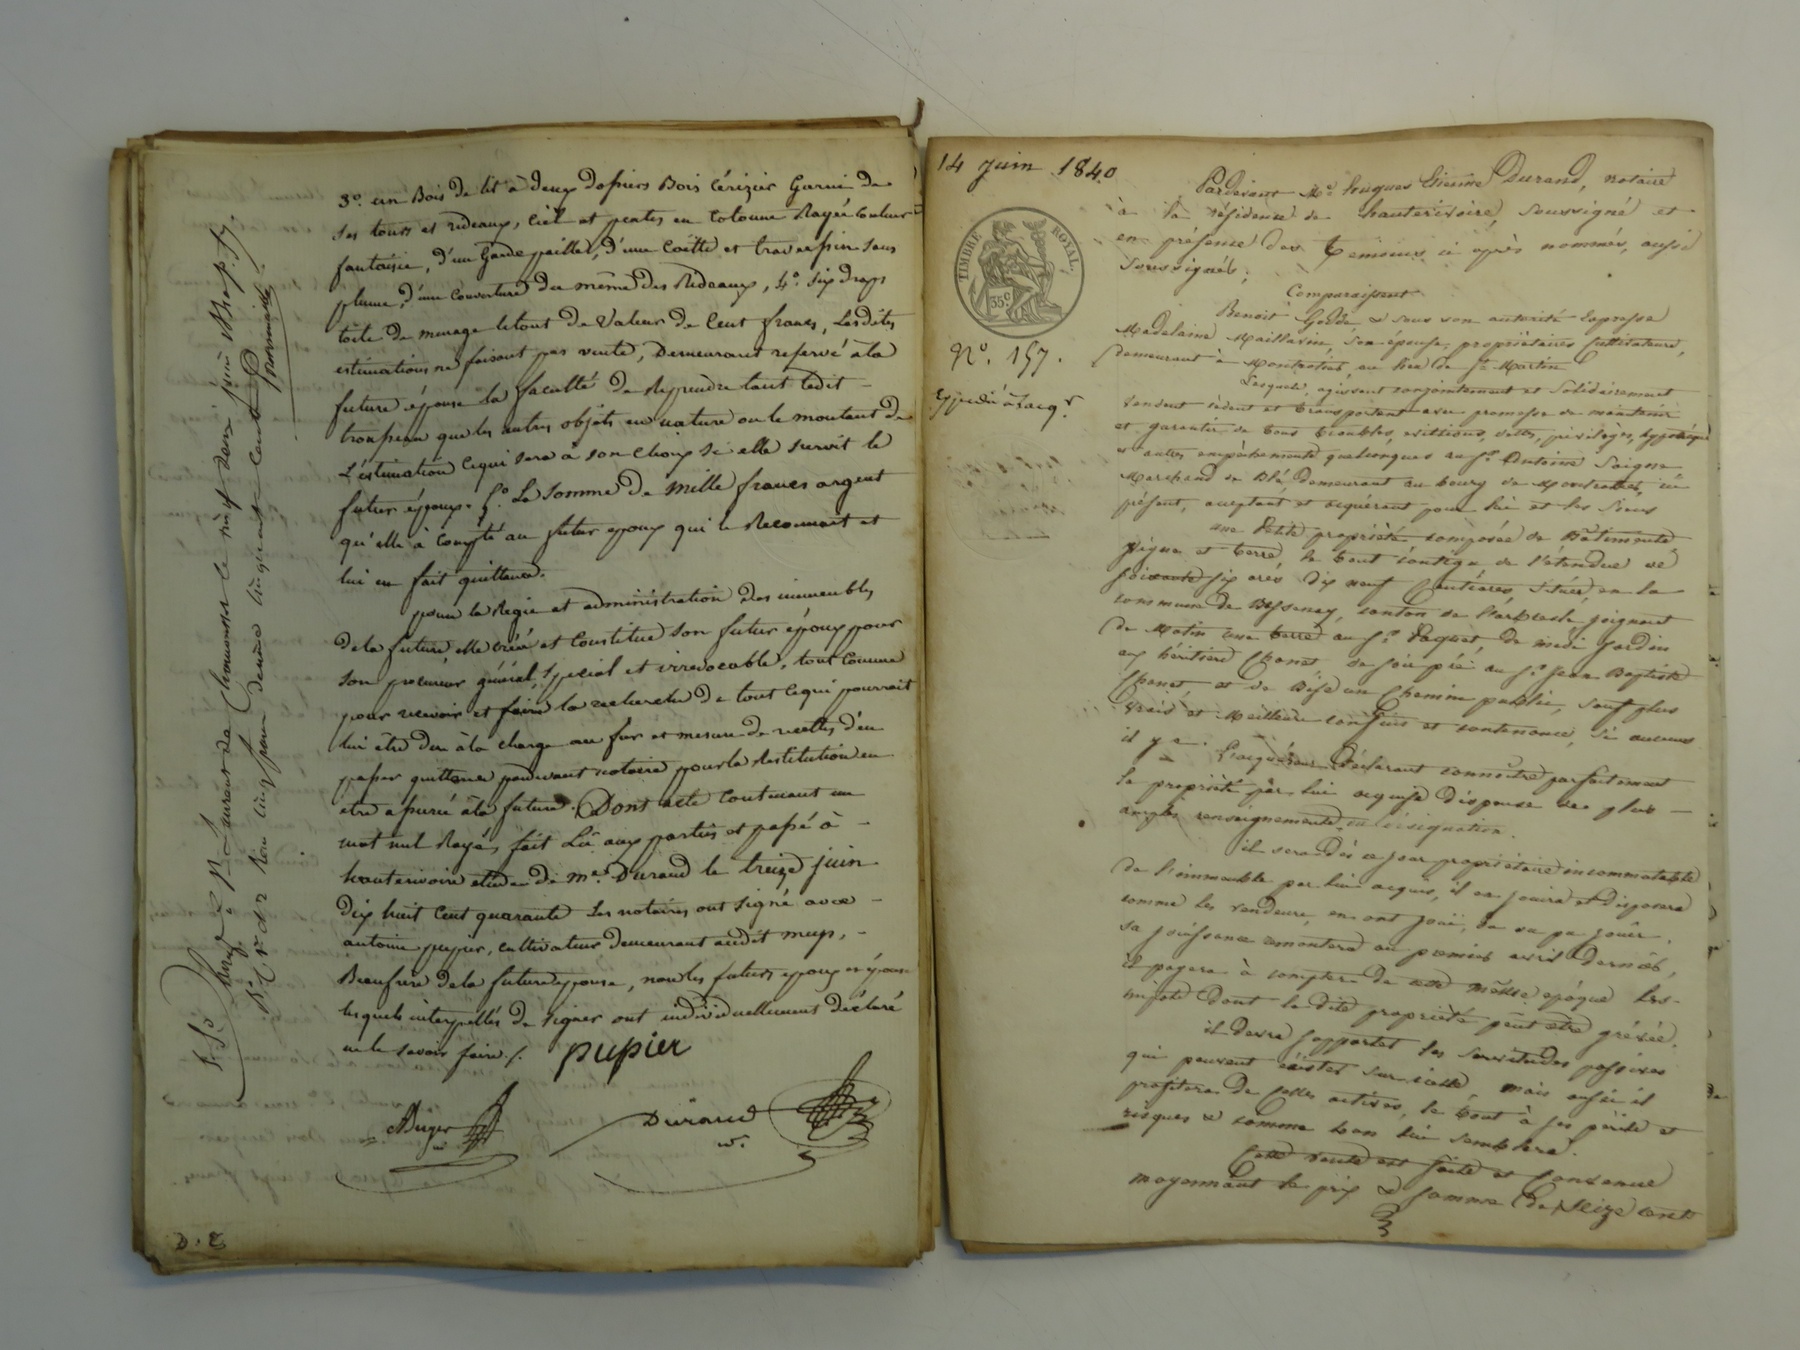 3º. un Bois de lit à deux dossiers Bois Cérizier Garni de
ses tours et rideaux, Ciel et pentes en Cotonne Rayée Couleur
fantaisie, d'un Garde paille, d'une Coëtte et traverssin sans
plume, d'une Couverture du même des Rideaux, 4º. six draps
toile de menage le tout de Valeur de Cent francs, Lesdites
estimations ne faisant pas vente, Demeurant reservé à la
future épouse la faculté de Reprendre tant ledit
trousseau que les autres objets en nature ou le montant de
L'estimation Cequi sera à son Choix si elle survit le
futur époux. 5º La Somme de Mille francs argent
qu'elle à Compté au futur epoux qui le Reconnait et
lui en fait quittance.
pour la Regie et administration des immeubles
de la future elle créé et Constitue son futur époux pour
son procureur général, Spécial et irrevocable, tout Comme
pour recevoir et faire la recherche de tout Cequi pourrait
lui être du à la charge au fur et mesure de recettes d'en
passer quittance pardevant notaire pour la Restitution en
etre assurée à la future. Dont acte Contenant un
mot nul Rayé, fait Lû aux parties et passé à
hauterivoire etude de Me. Durand le treize juin
Dix huit Cent quarante Les notaires ont Signé avec
antoine pupier, cultivateur demeurant audit meys,
Beaufrere de la future epouse, non les futurs epoux et épouse
lesquels interpellés de signer ont individuellement déclaré
ne le savoir faire /.
pupier
Durand
nre.
14 Juin 1840
TIMBRE ROYAL.
35c
Nº. 157.
Expedié à l'acqr.
Pardevant Me. hugues Etienne Durand, notaire
à la résidence de hauterivoire, soussigné et
en présence des Temoins ci après nommés, aussi
Soussignés;
Comparaissent
Benoit & sous son autorité Expresse
Madelaine Maillavin, son épouse, propriétaires Cultivateurs,
demeurant à Montrotier, au lieu de St. Martin
Lesquels, agissant conjointement et Solidairement
vendent cèdent et transportent avec promesse de maintenir
et garantir de tous troubles, evictions, dettes, privilèges, hypothèques
et autres empêchements quelconques au Sr. Antoine
Marchand de Blé demeurant au bourg de Montrottier, ici
présent, acceptant et acquérant pour lui et les Siens
une Petite propriété composée de Bâtiments
vigne et terre, le tout contigu de l'étendue de
soixante six ares dix neuf Centiares, située en la
commune de Bessenay, canton de l'arbresle joignant
de Matin une terre au Sr. Paquet de midi jardin
aux héritiers Chanet de soir pré au Sr. Jean Baptiste
Chanet, et de Bise un Chemin public, sauf plus
vrais et Meilleurs confins et contenance, si aucuns
il y a.
L'acquéreur Déclarant connoître parfaitement
la propriété par lui acquise dispense de plus
amples renseignements ou désignation.
il sera dès ce jour propriétaire incommutable
de l'immeuble par lui acquis, il en jouira et disposera
comme les vendeurs en ont joui, ou dû pu jouir,
sa jouissance remontera au premier avril dernier,
il payera à compter de cette même époque les
impots dont la dite propriété peut etre grévée.
il devra supporter les servitudes passives
qui peuvent éxister sur icelle, mais aussi il
profitera de celles actives, le tout à ses périls et
risques & comme bon lui semblera.
Cette vente est faite et Convenue
moyennant le prix & somme de Seize cents